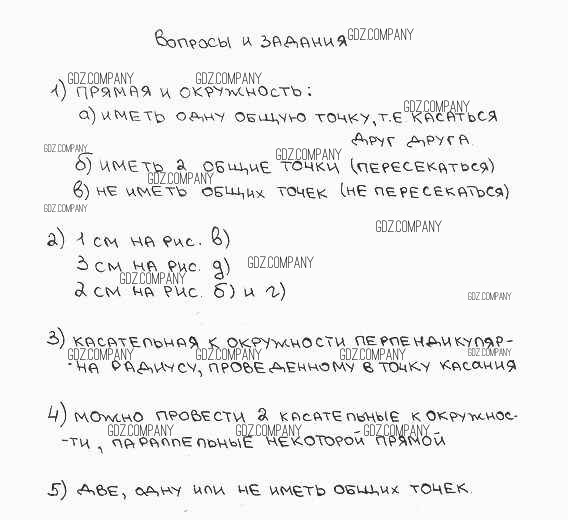 Вопросы и задания GDZ.COMPANY
GDZ.COMPANY GDZ.COMPANY
1) прямая и окружность:
GDZ.COMPANY
а) иметь одну общую точку, т.е касаться
друг друга.
GDZ.COMPANY GDZ.COMPANY
б) иметь 2 общие точки (пересекаться)
GDZ.COMPANY
в) не иметь общих точек (не пересекаться)
GDZ.COMPANY
GDZ.COMPANY
2) 1 см на рис. в)
3 см на рис. д) GDZ.COMPANY
GDZ.COMPANY
2 см на рис. б) и г)
GDZ.COMPANY
3) касательная к окружности перпендикуляр-
GDZ.COMPANY GDZ.COMPANY GDZ.COMPANY GDZ.COMPANY
-на радиусу, проведенному в точку касания
4) можно провести 2 касательные к окружнос-
GDZ.COMPANY GDZ.COMPANY GDZ.COMPANY
-ти, параллельные некоторой прямой
5) две, одну или не иметь общих точек.